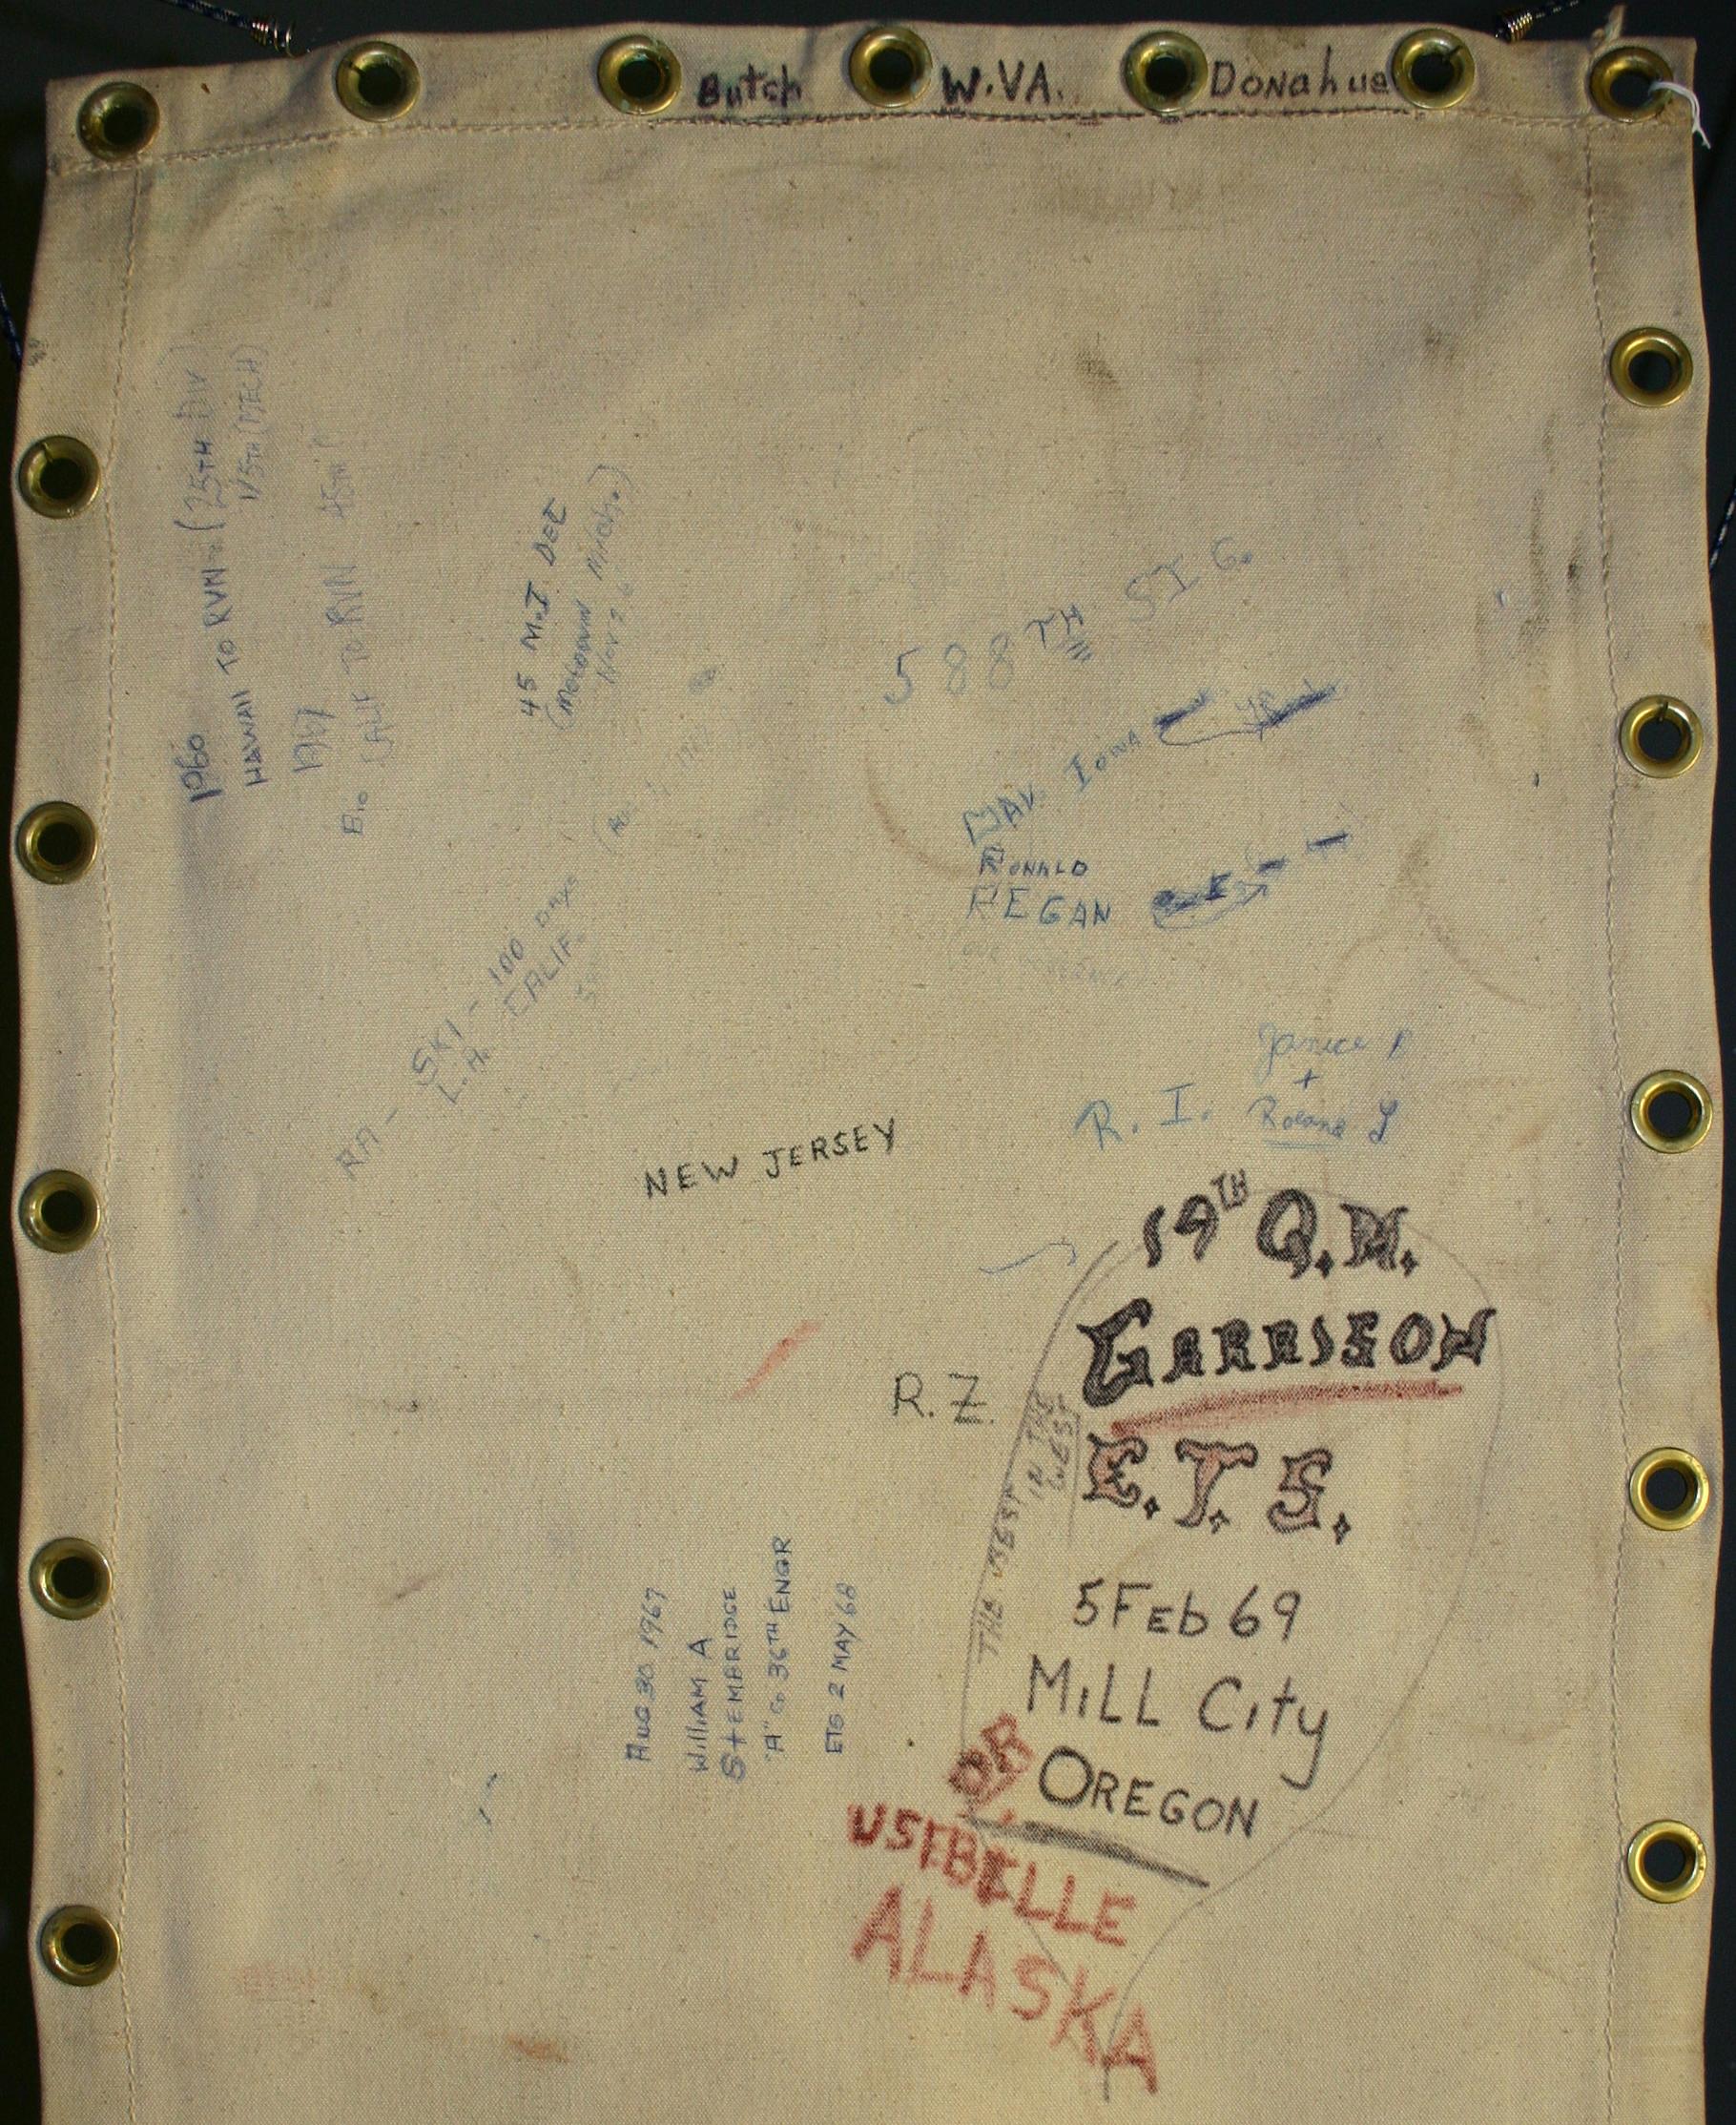 Butch W.VA. Donahue
1960
HAWAII TO RVN (25TH DIV)
1/5TH (MECH)
1967
CALIF TO RVN 45TH
45 M.I DET
(Motown Mich.)
Nov 26
588TH SIG.
MAV. IOWA
RONALD
REGAN
RA - SKI - 100 DAYS
L.H. CALIF.
Janice P
+
R. I. Roland L
NEW JERSEY
19TH Q.M.
GARRISON
R.Z.
E.T.S.
THE WEST IN THE
WEST
5 Feb 69
MiLL City
OREGON
OR
USIBELLE
ALASKA
AUG 30 1967
William A
StEMBRIDGE
"A" Co 36TH ENGR
ETS 2 MAY 68